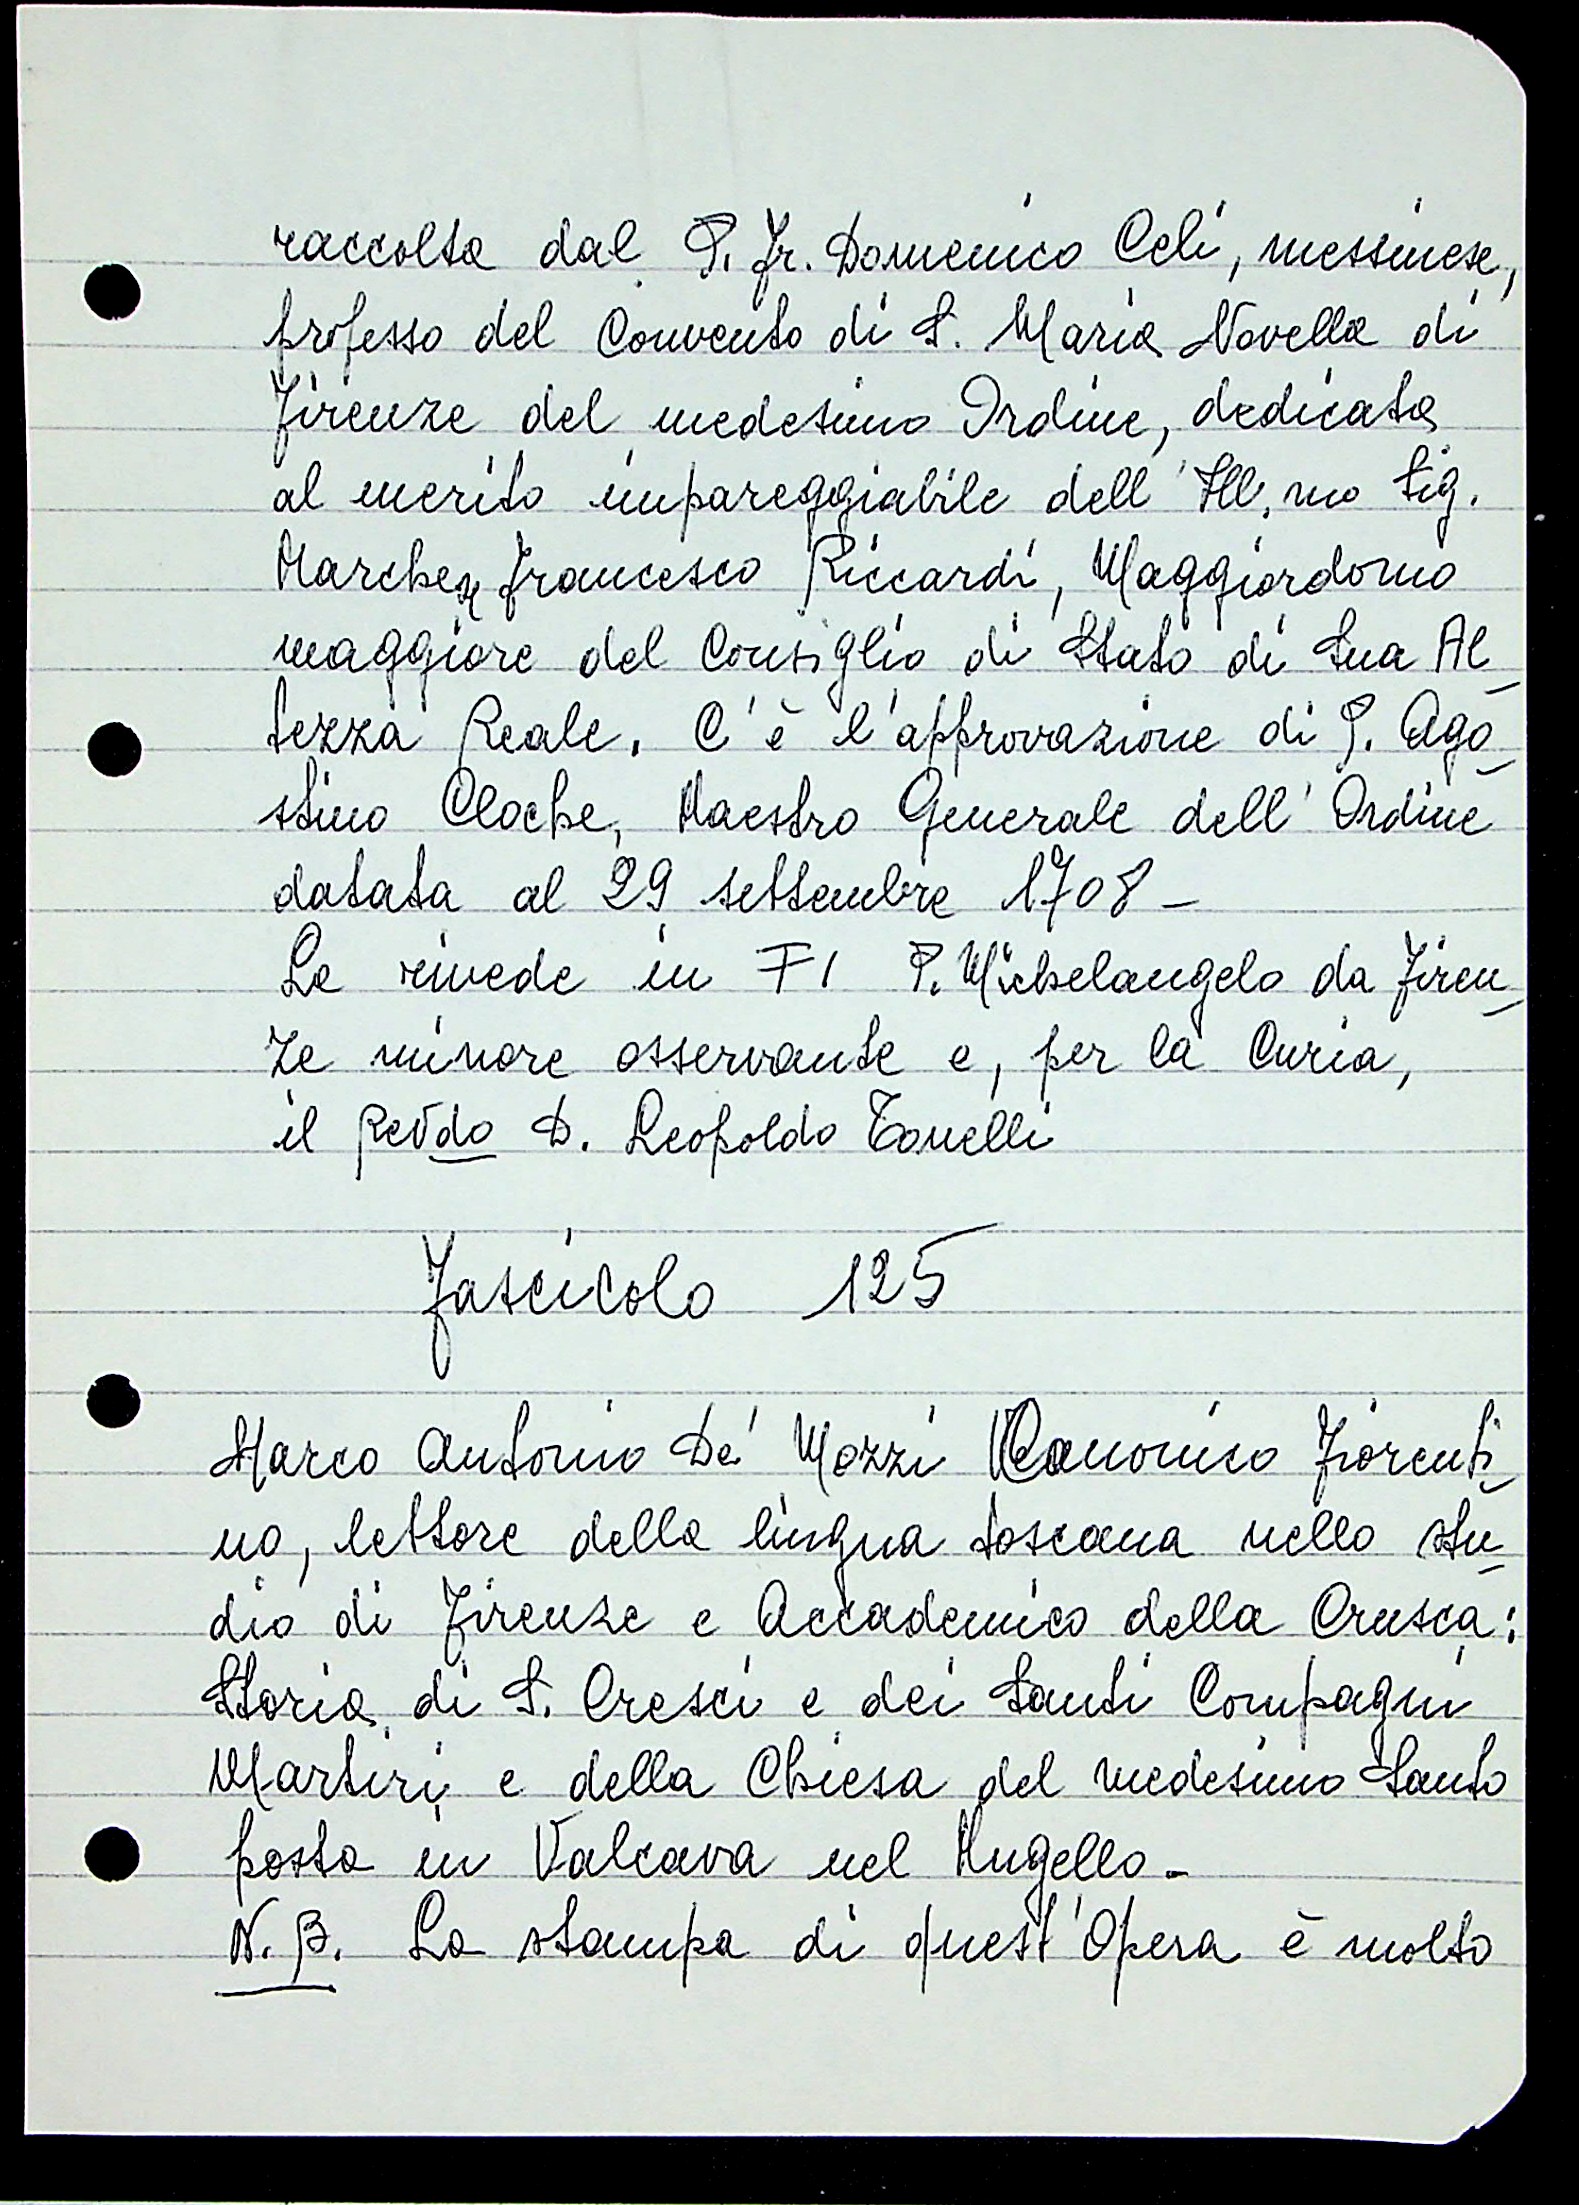 raccolta dal P. Fr. Domenico Celi, messinese,
professo del Convento di S. Maria Novella di
Firenze del medesimo Ordine, dedicata
al merito impareggiabile dell'Ill.mo Sig.
Marchese Francesco Riccardi, Maggiordomo
maggiore del Consiglio di Stato di Sua Al_
tezza Reale. C'è l'approvazione di P. Ago_
stino Cloche, Maestro Generale dell'Ordine
datata al 29 settembre 1708 -
La rivede in FI P. Michelangelo da Firen_
ze minore osservante e, per la Curia,
il Revdo D. Leopoldo Tonelli
Fascicolo 125
Marco Antonio De' Mozzi Canonico Fiorenti_
no, lettore della lingua toscana nello stu_
dio di Firenze e Accademico della Crusca:
Storia di S. Cresci e dei Santi Compagni
Martiri e della Chiesa del medesimo Santo
posta in Valcava nel Mugello -
N. B. La stampa di quest'Opera è molto